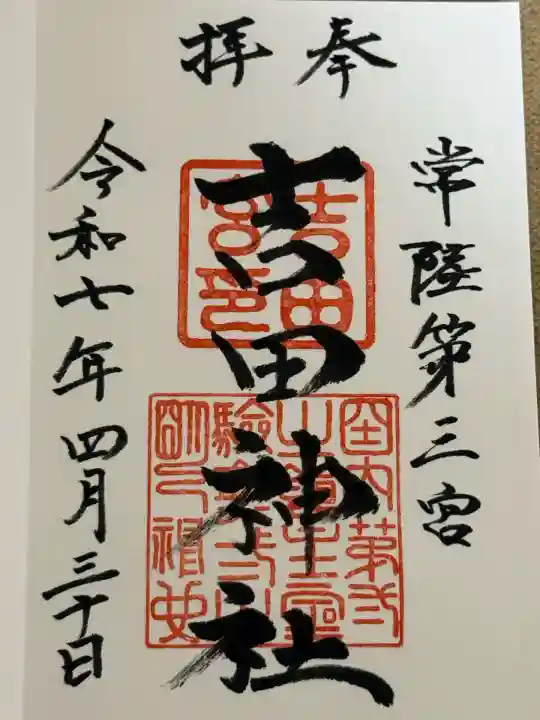 奉拝
常陸第三宮
吉田神社
令和七年四月三十日
吉田宮印